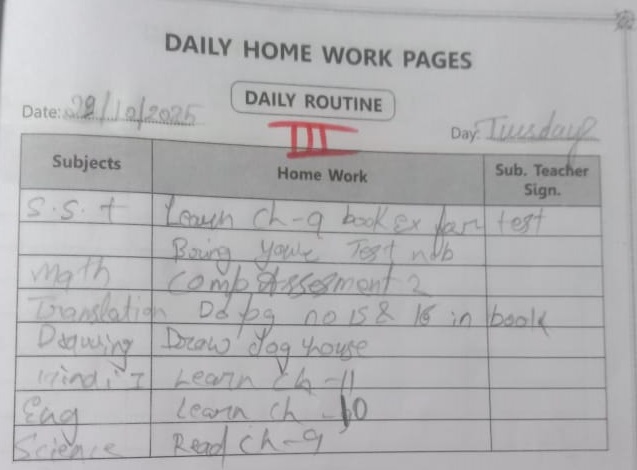 DAILY HOME WORK PAGES
DAILY ROUTINE
Date: 28/10/2025 Day: Tuesday
III
Subjects Home Work Sub. Teacher Sign.
S.S.t Learn ch-9 book Ex for test
Bring Test
Math Comp Assesment 2
Translation Do pg no 15 & 16 in book
Drawing Draw dog house
Hindi I Learn Ch-11
Eng Learn ch-10
Science Read ch-9